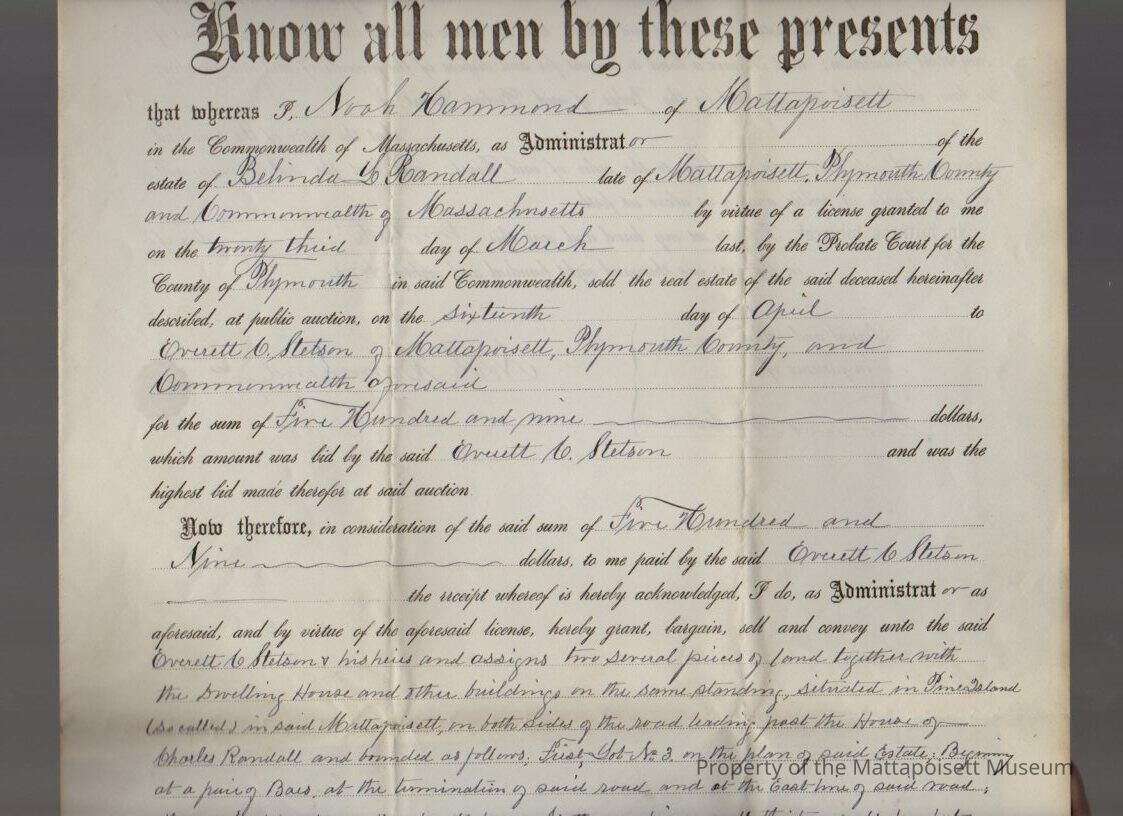 Know all men by these presents
that whereas I, Noah Hammond of Mattapoisett
in the Commonwealth of Massachusetts, as Administrator of the
estate of Belinda L Randall late of Mattapoisett, Plymouth County
and Commonwealth of Massachusetts by virtue of a license granted to me
on the twenty third day of March last, by the Probate Court for the
County of Plymouth in said Commonwealth, sold the real estate of the said deceased hereinafter
described, at public auction, on the sixteenth day of April to
Everett C. Stetson of Mattapoisett, Plymouth County, and
Commonwealth aforesaid
for the sum of Five Hundred and nine dollars,
which amount was bid by the said Everett C. Stetson and was the
highest bid made therefor at said auction.
Now therefore, in consideration of the said sum of Five Hundred and
Nine dollars, to me paid by the said Everett C Stetson
the receipt whereof is hereby acknowledged, I do, as Administrator as
aforesaid, and by virtue of the aforesaid license, hereby grant, bargain, sell and convey unto the said
Everett C Stetson & his heirs and assigns two several pieces of land together with
the Dwelling House and other buildings on the same standing, situated in Pine Island
(so called) in said Mattapoisett, on both sides of the road leading past the House of
Charles Randall and bounded as follows. First Lot No 3 on the plan of said Estate: Begining
at a pair of Bars, at the termination of said road and at the East line of said road;
Property of the Mattapoisett Museum